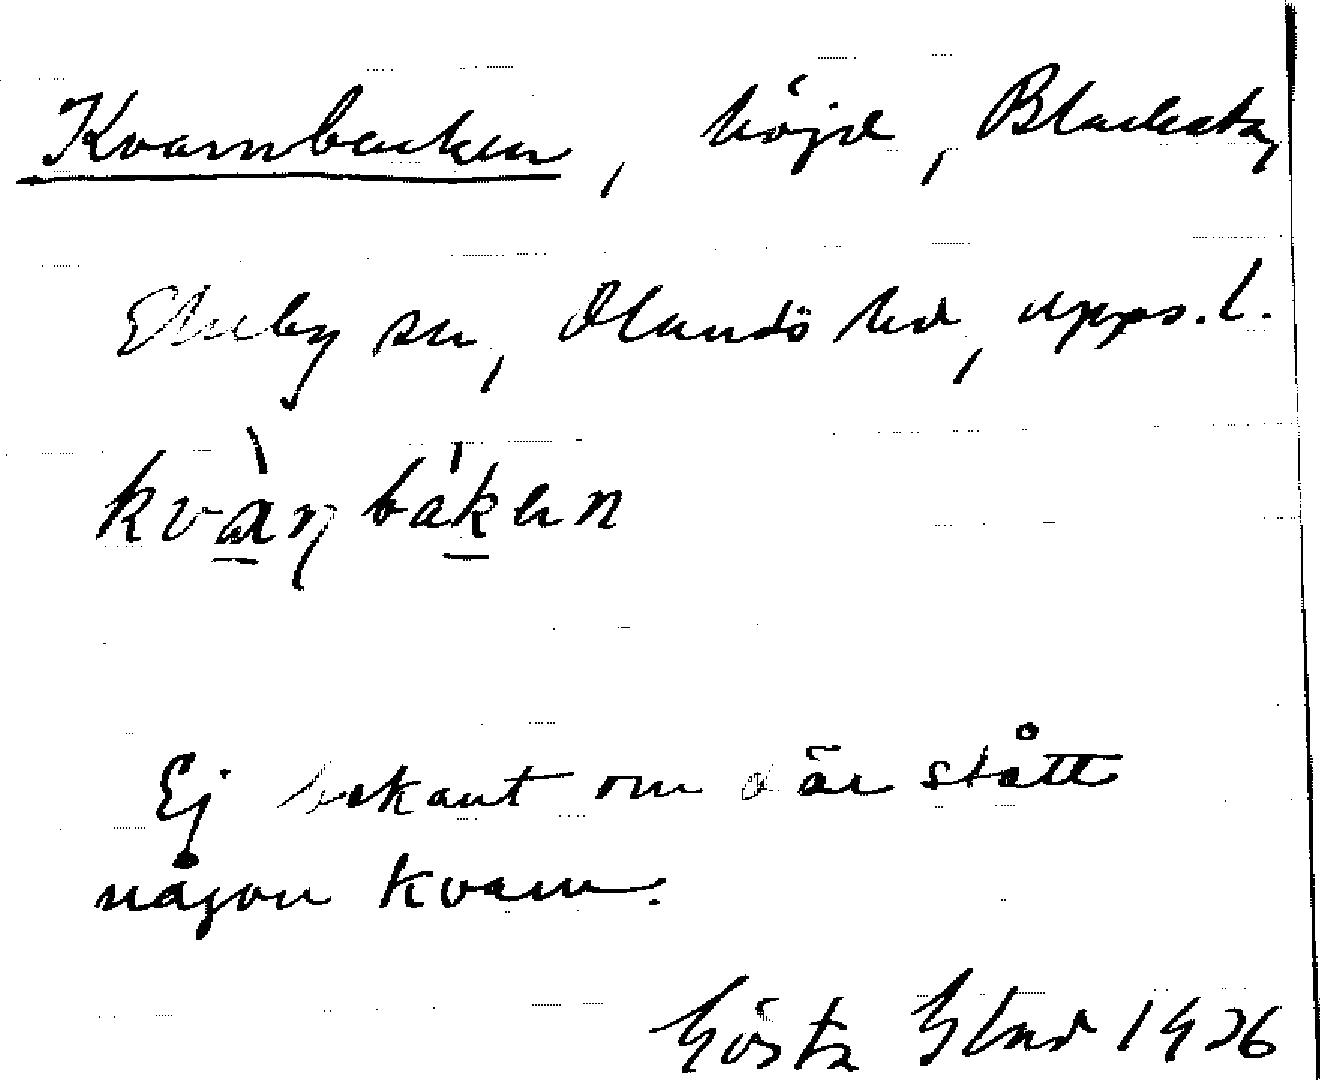 Kvarnbacken, höjd, Blacksta,
Ekeby sn, Olands hd, Upps. l.
kvàɳbákən
Ej bekant om där stått
någon kvarn.
Gösta Eklund 1926